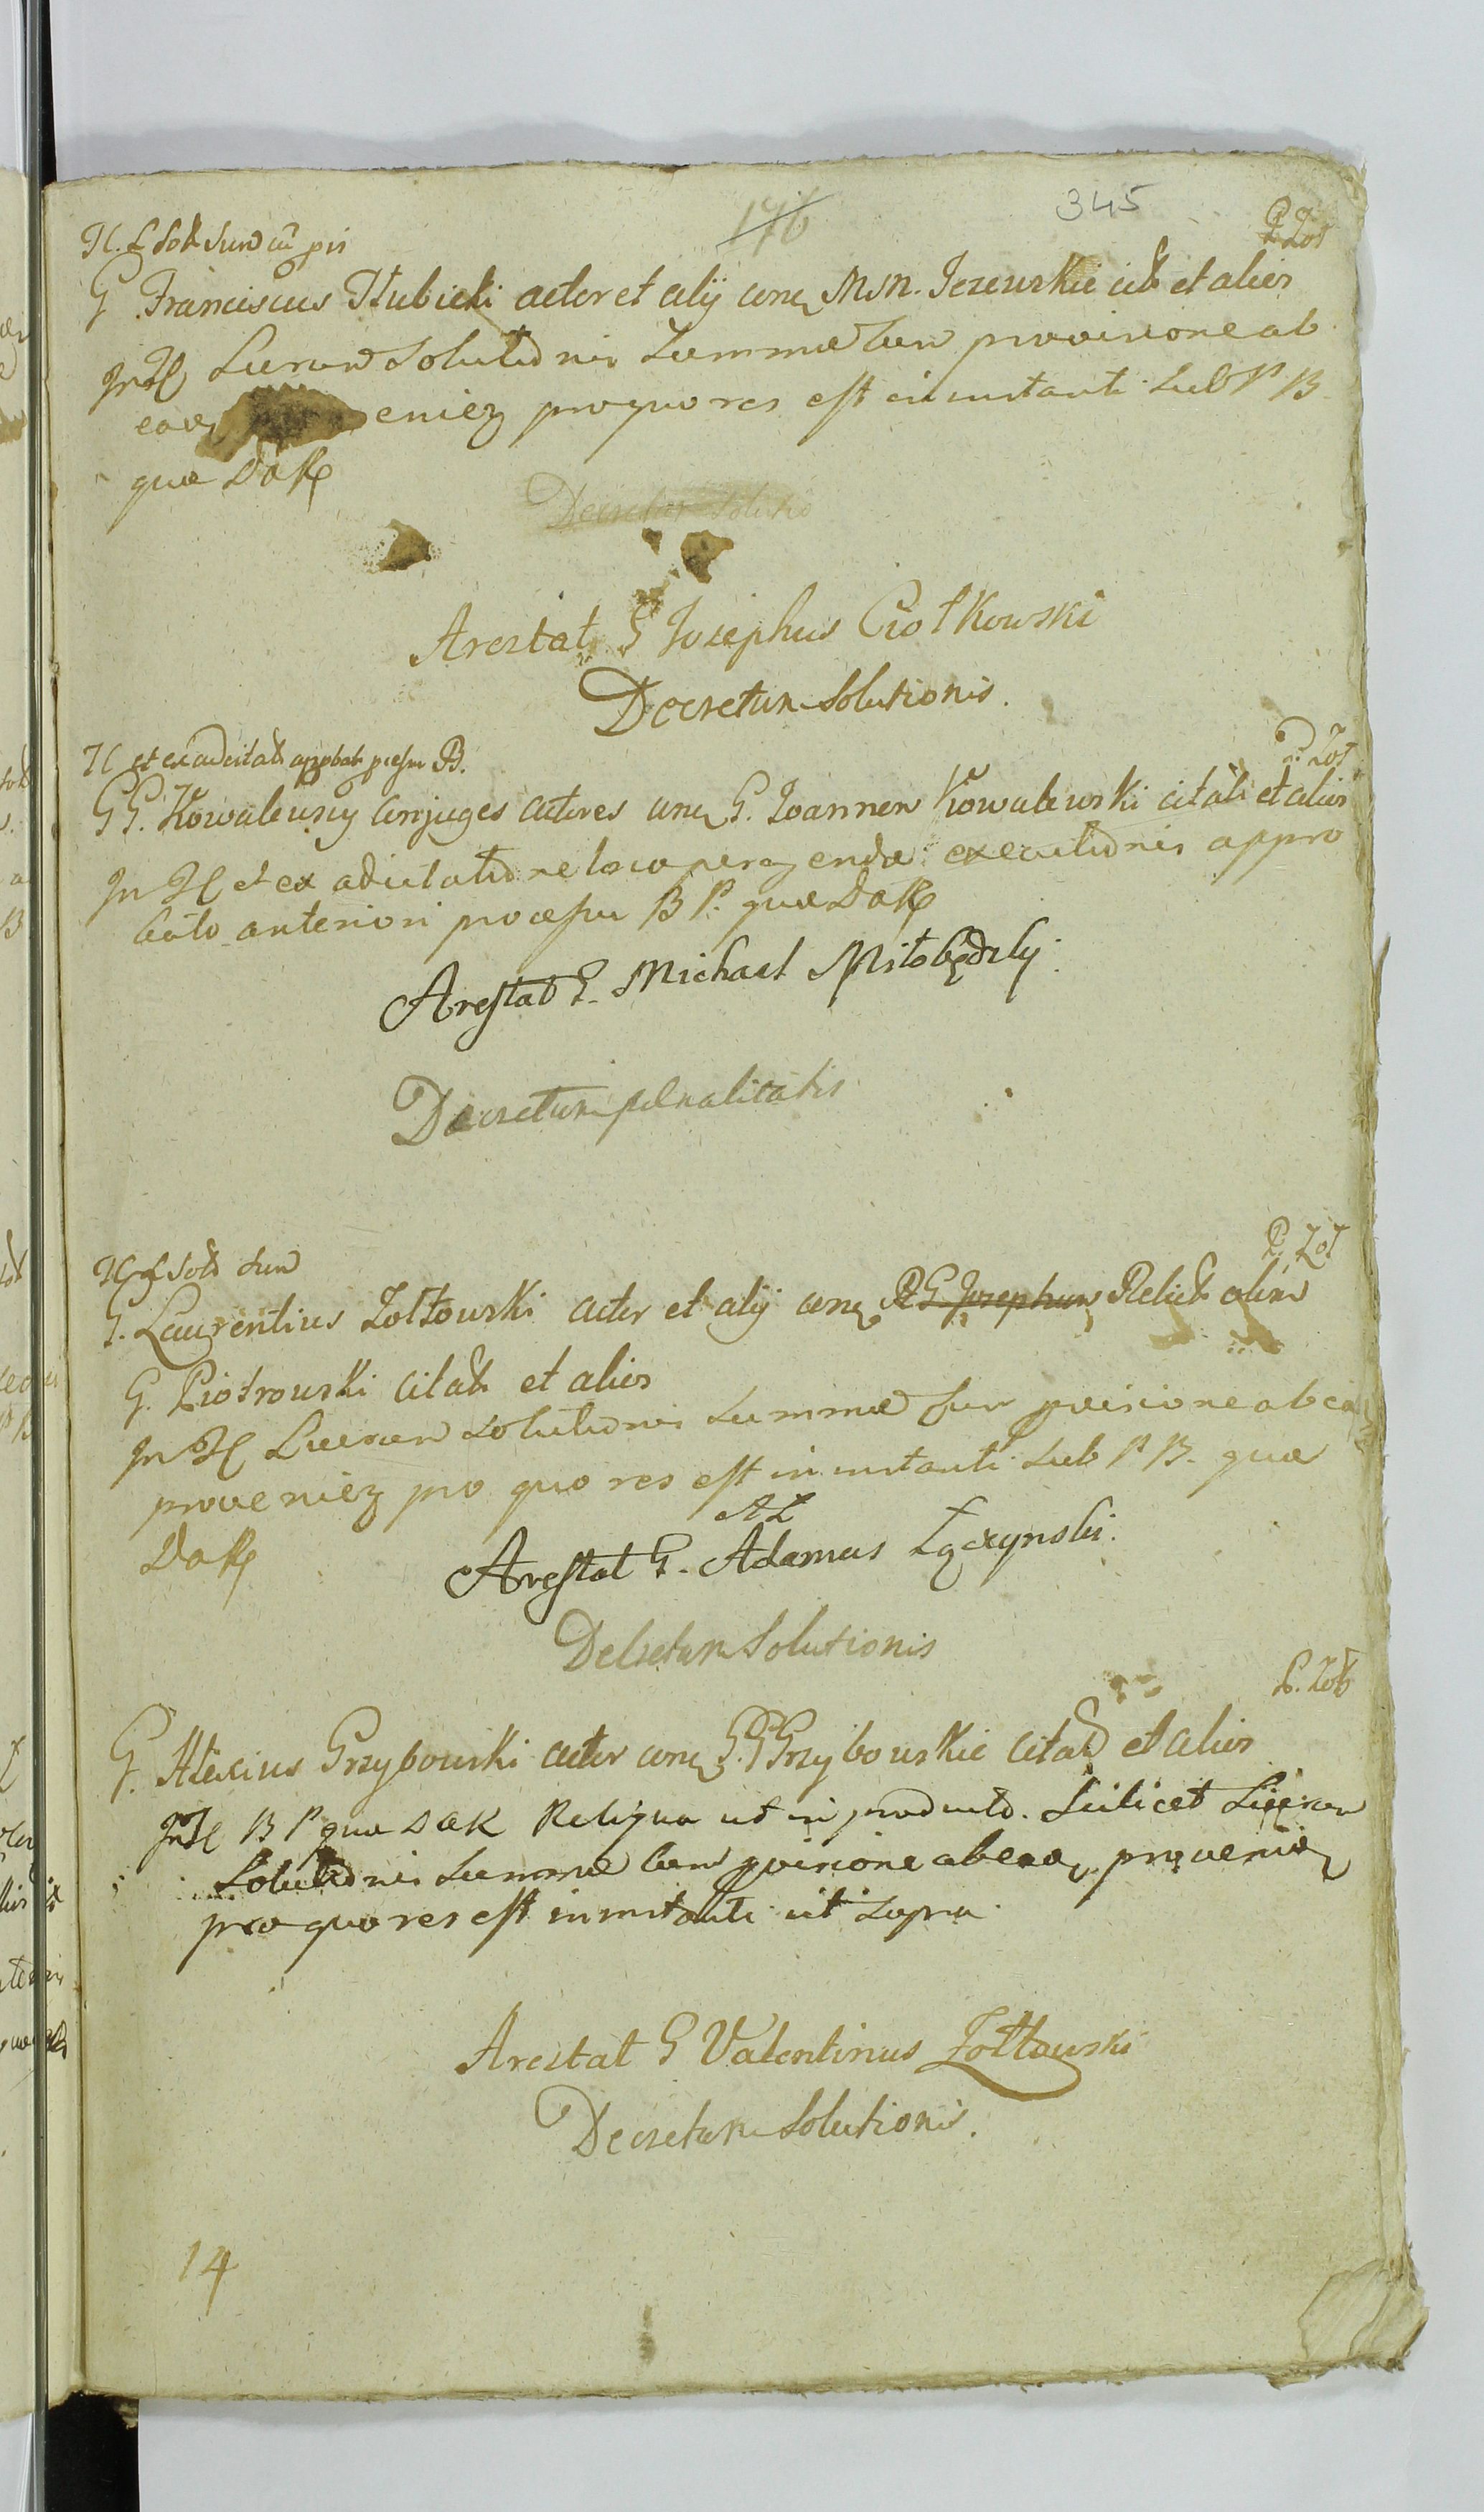 176
345
P. Zoł
H. f Sot Sum cu pis
G Franciscus Hubicki actor et alij conq MM. Jezewskie cit et alios
In H Lucrum solutionis Summae cum provisione ab
eaq eniez pro quo res est in instanti sub P B
quae DaK
Decretum Solutio
Arestat G Josephus Ciołkowski
Decretum Solutionis.
H et ex adcitat approbat pcessu B.
P. Zoł
GG. Kowalewscy Conjuges actores conq G. Joannem Kowalewski citat et alios
In H et ex adcitatione loco peragendae executionis appro
bato anteriori processu B P. quae DaK
Arestat G. Michael Miłobędzky.
Decretum paenalitatis
H f Sot Sum
P. Zoł
G. Laurentius Zołtowski actor et alij conq RG Josephum Relict olim
G. Piotrowski citat et alios
In H Lucrum solutionis Summae cum pvisione ab ea
proveniez pro quo res est in instanti sub P B. quae
DaK
AŁ
Arestat G. Adamus Łączynski.
Decretum Solutionis
P. Zoł
G. Alexius Grzybowski actor conq G.G Grzybowskie citat et alios
In H B P quae DaK Reliqua ut in producto. Scilicet Lucrum
Solutionis Summae cum pvisione ab eaq proveniez
pro quo res est in instanti ut supra
Arestat G Valentinus Zołtowski
Decretum Solutionis.
14